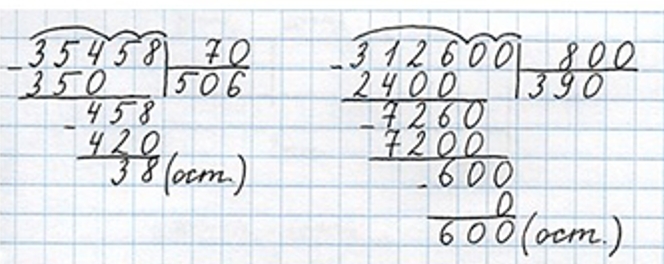 35458 70
350 506
458
420
38 (ост.)
312600 800
2400 390
7260
7200
600
0
600 (ост.)